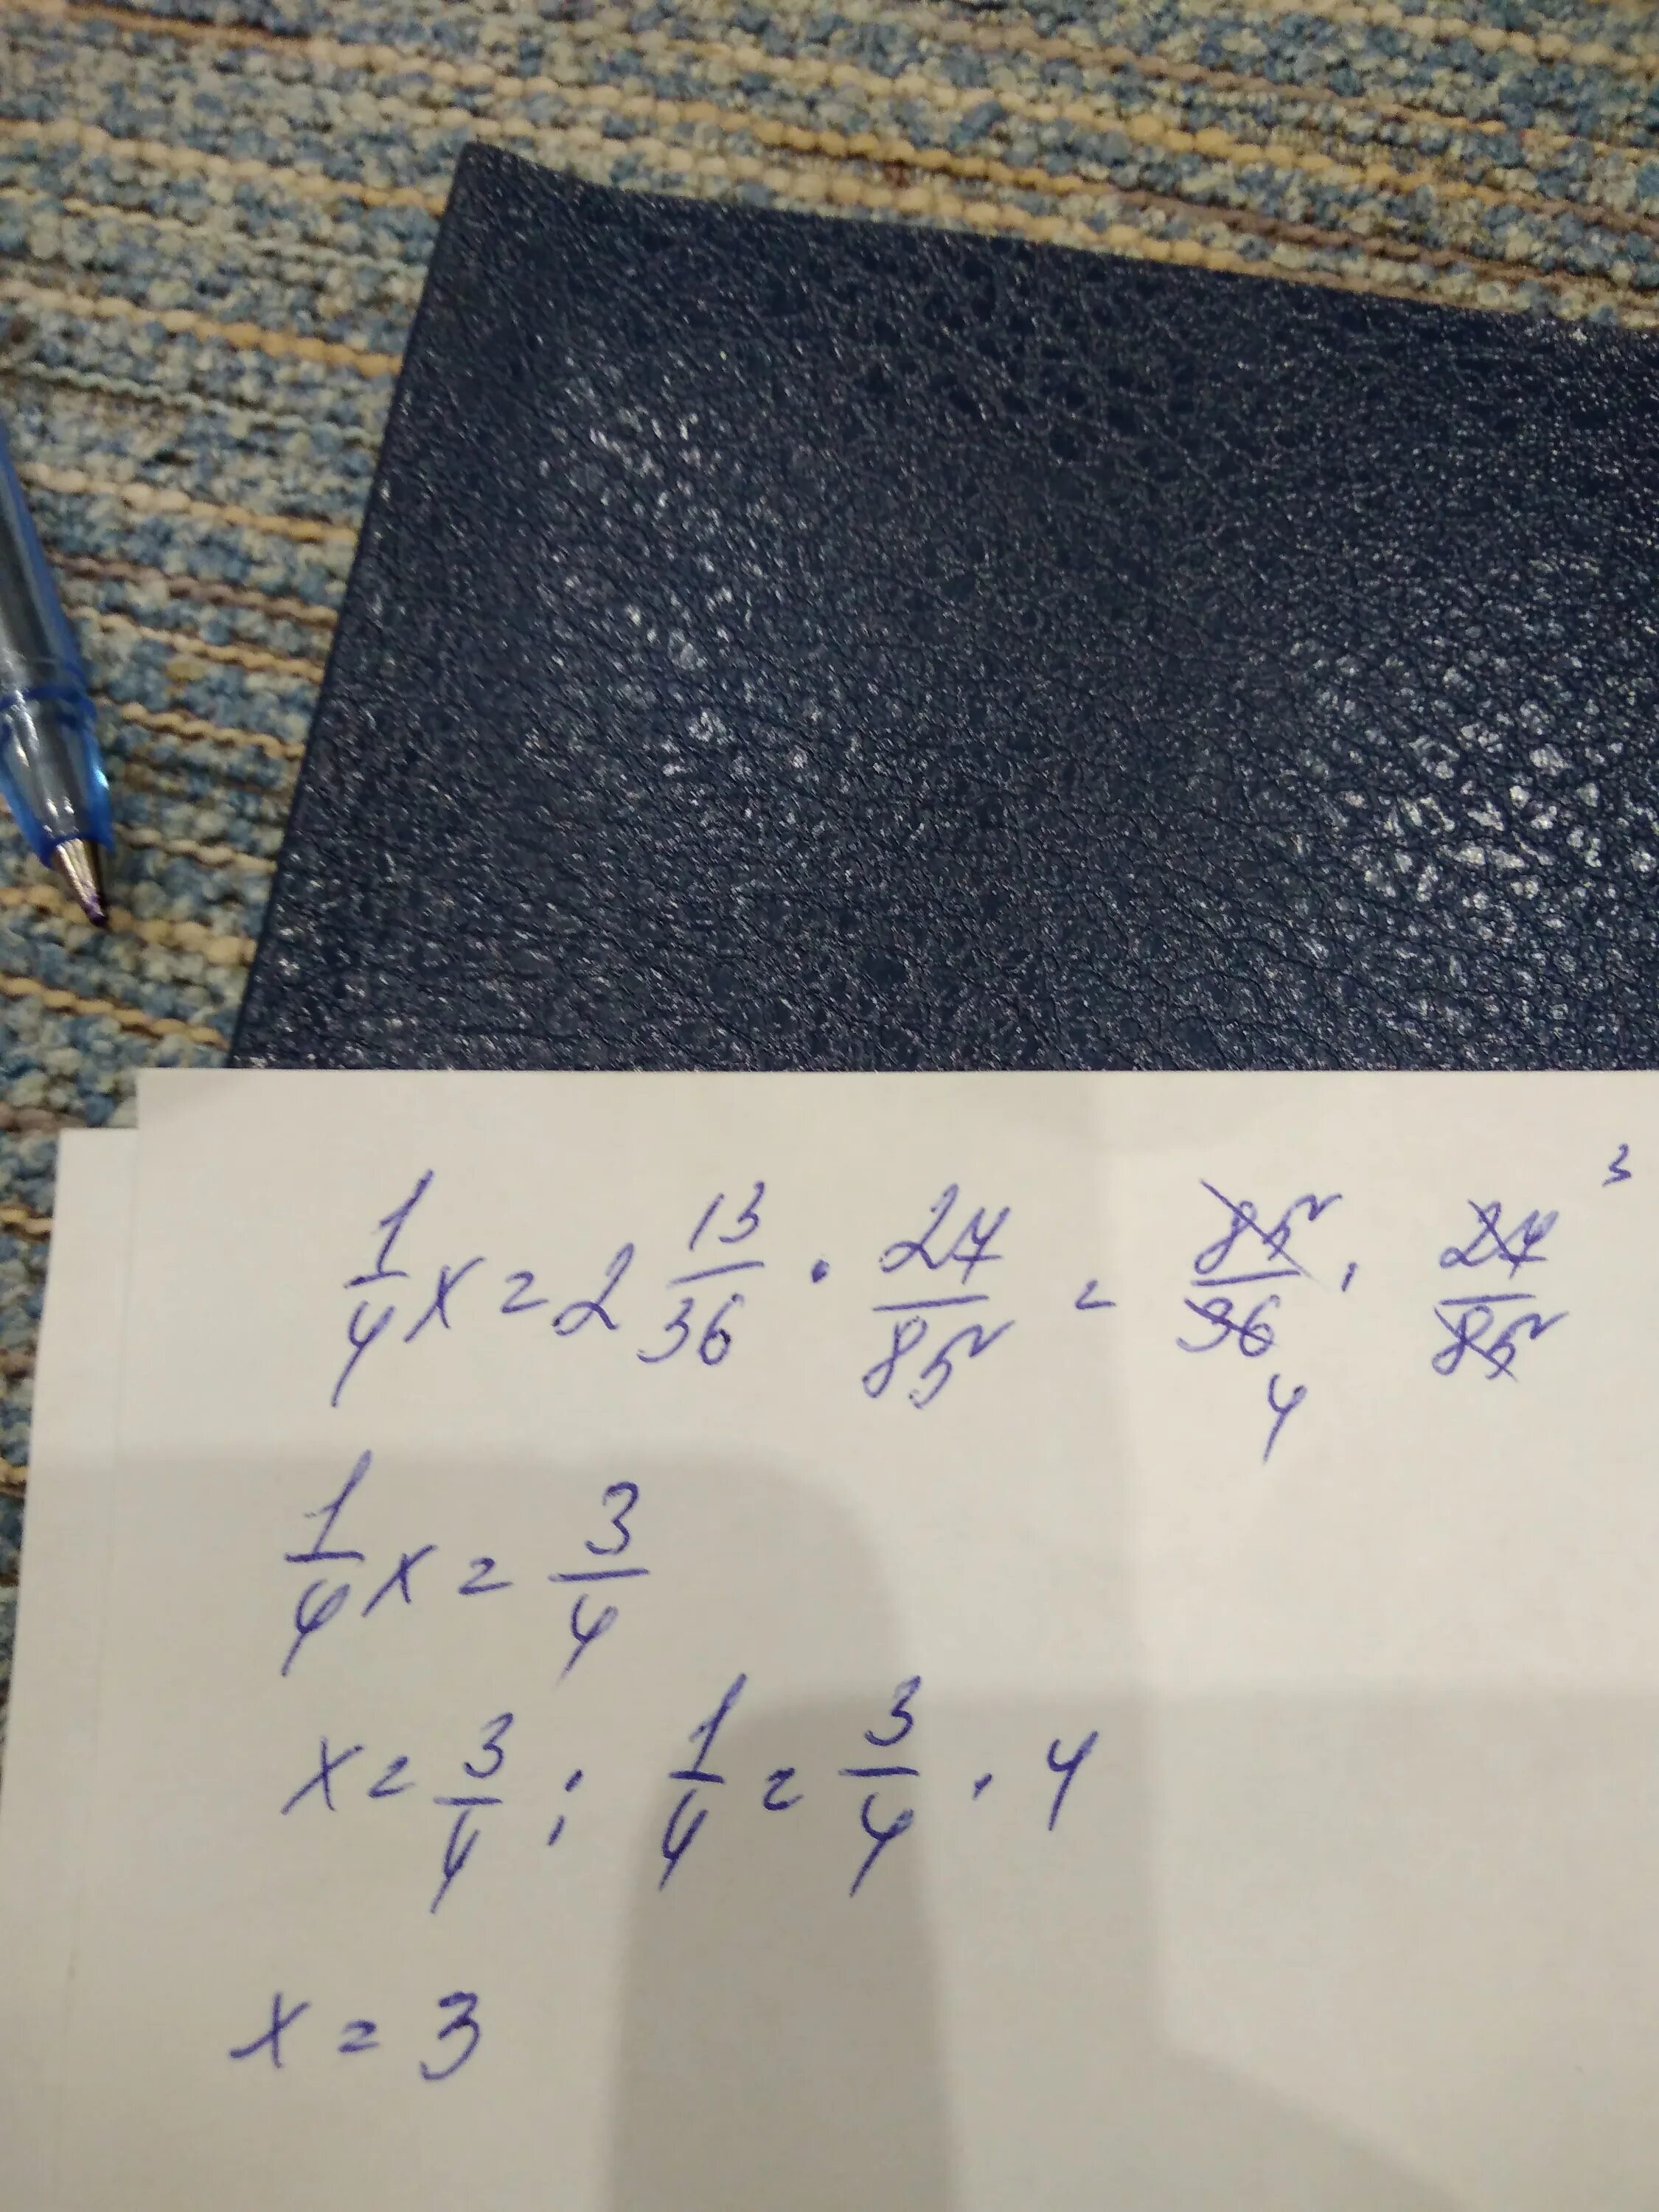 1/4 x = 2 13/36 · 27/85 = 85/36 · 27/85 3 4
1/4 x = 3/4
x = 3/4 : 1/4 = 3/4 · 4
x = 3